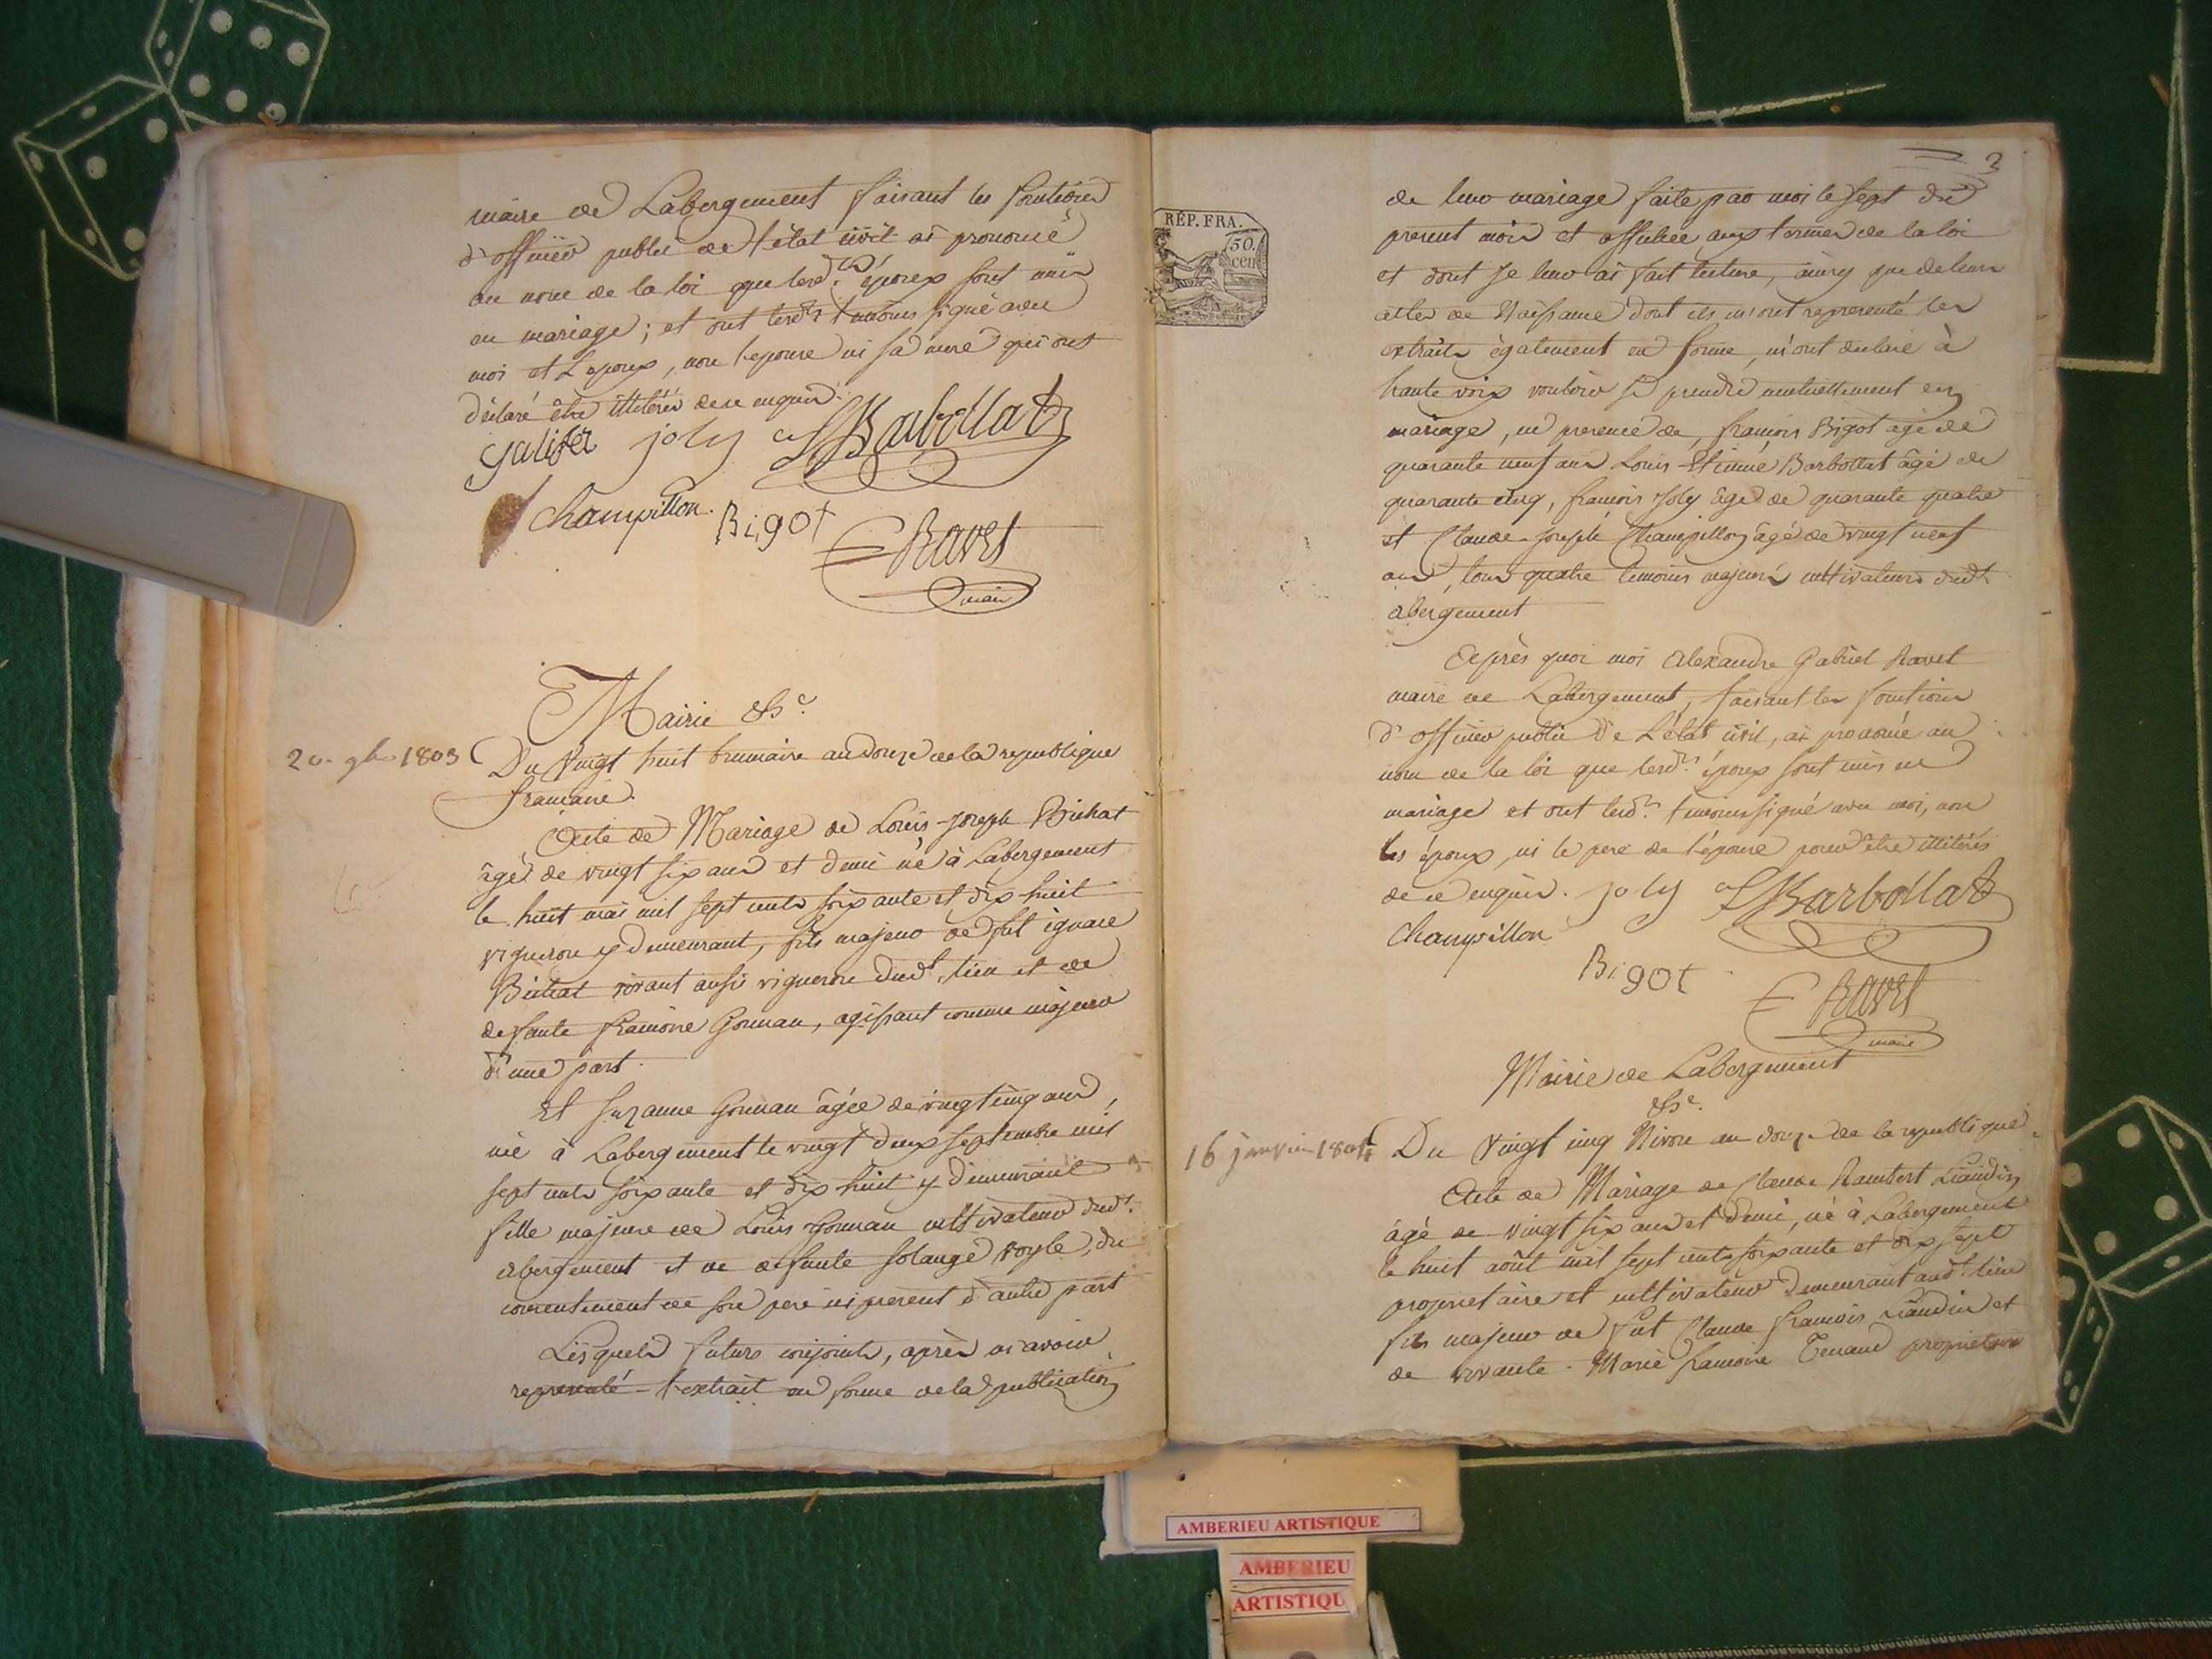 maire de Labergement faisant les fonctions
d'officier public de l'état civil ai prononcé
au nom de la loi que lesd.ts époux sont unis
en mariage; et ont lesd.ts témoins signé avec
moi et L'epoux, non l'epouse ni sa mere qui ont
déclaré être illitérés de ce enquis.
Galifet joly LE Barbollat
Champillon. Bigot
Ravet
maire
Mairie &c.
20. 9bre 1803
Du Vingt huit brumaire an douze de la republique
francaise.
Acte de Mariage de Louis-joseph Bichat
âgé de vingt six ans et demi né à Labergement
le huit mai mil sept cents soixante et dix huit
vigneron y demeurant, fils majeur de fut ignace
Bichat vivant aussi vigneron dud.t lieu et de
defunte francoise Gonnau, agissant comme majeur
d'une part.
Et suzanne Gonnau âgée de vingt cinq ans,
née à Labergement le vingt deux septembre mil
sept cents soixante et dix huit y demeurant
fille majeure de Louis Gonnau cultivateur dud.t
abergement et de defunte solange voyle, du
consentement de son pere ici présent d'autre part
Lesquels futurs conjoints, après m'avoir
representé l'extrait en forme de la publication
3
RÉP. FRA.
50.
cen
de leur mariage faite par moi le sept du
present mois et affichée aux termes de la loi
et dont je leur ai fait lecture, ainsy que de leurs
actes de Naissance dont ils m'ont representé les
extraits également en forme, m'ont declaré à
haute voix vouloir se prendre mutuellement en
mariage, en presence de, francois Bigot âgé de
quarante neuf ans Louis-Etienne Barbollat âgé de
quarante cinq, francois Joly âgé de quarante quatre
et Claude-joseph Champillon âgé de vingt neuf
ans, tous quatre temoins majeurs cultivateurs dud.t
abergement
Après quoi moi Alexandre Gabriel Ravet
maire de Labergement, faisant les fonctions
d'officier public de L'état civil, ai prononcé au
nom de la loi que lesd.ts époux sont unis en
mariage et ont lesd.ts temoins signé avec moi, non
les époux, ni le pere de l'épouse pour être illitérés
de ce enquis. joly LE Barbollat
Champillon
Bigot
Ravet
maire
Mairie de Labergement
&c.
16 janvier 1804
Du Vingt cinq Nivose an douze de la republique.
Acte de Mariage de Claude Rambert Liaudin
âgé de vingt six ans et demi, né à Labergement
le huit août mil sept cents soixante et dix sept
proprietaire et cultivateur demeurant aud.t lieu
fils majeur de fut Claude francois Liaudin et
de vivante Marie francoise Tenand proprietaire
AMBERIEU ARTISTIQUE
AMBERIEU
ARTISTIQU